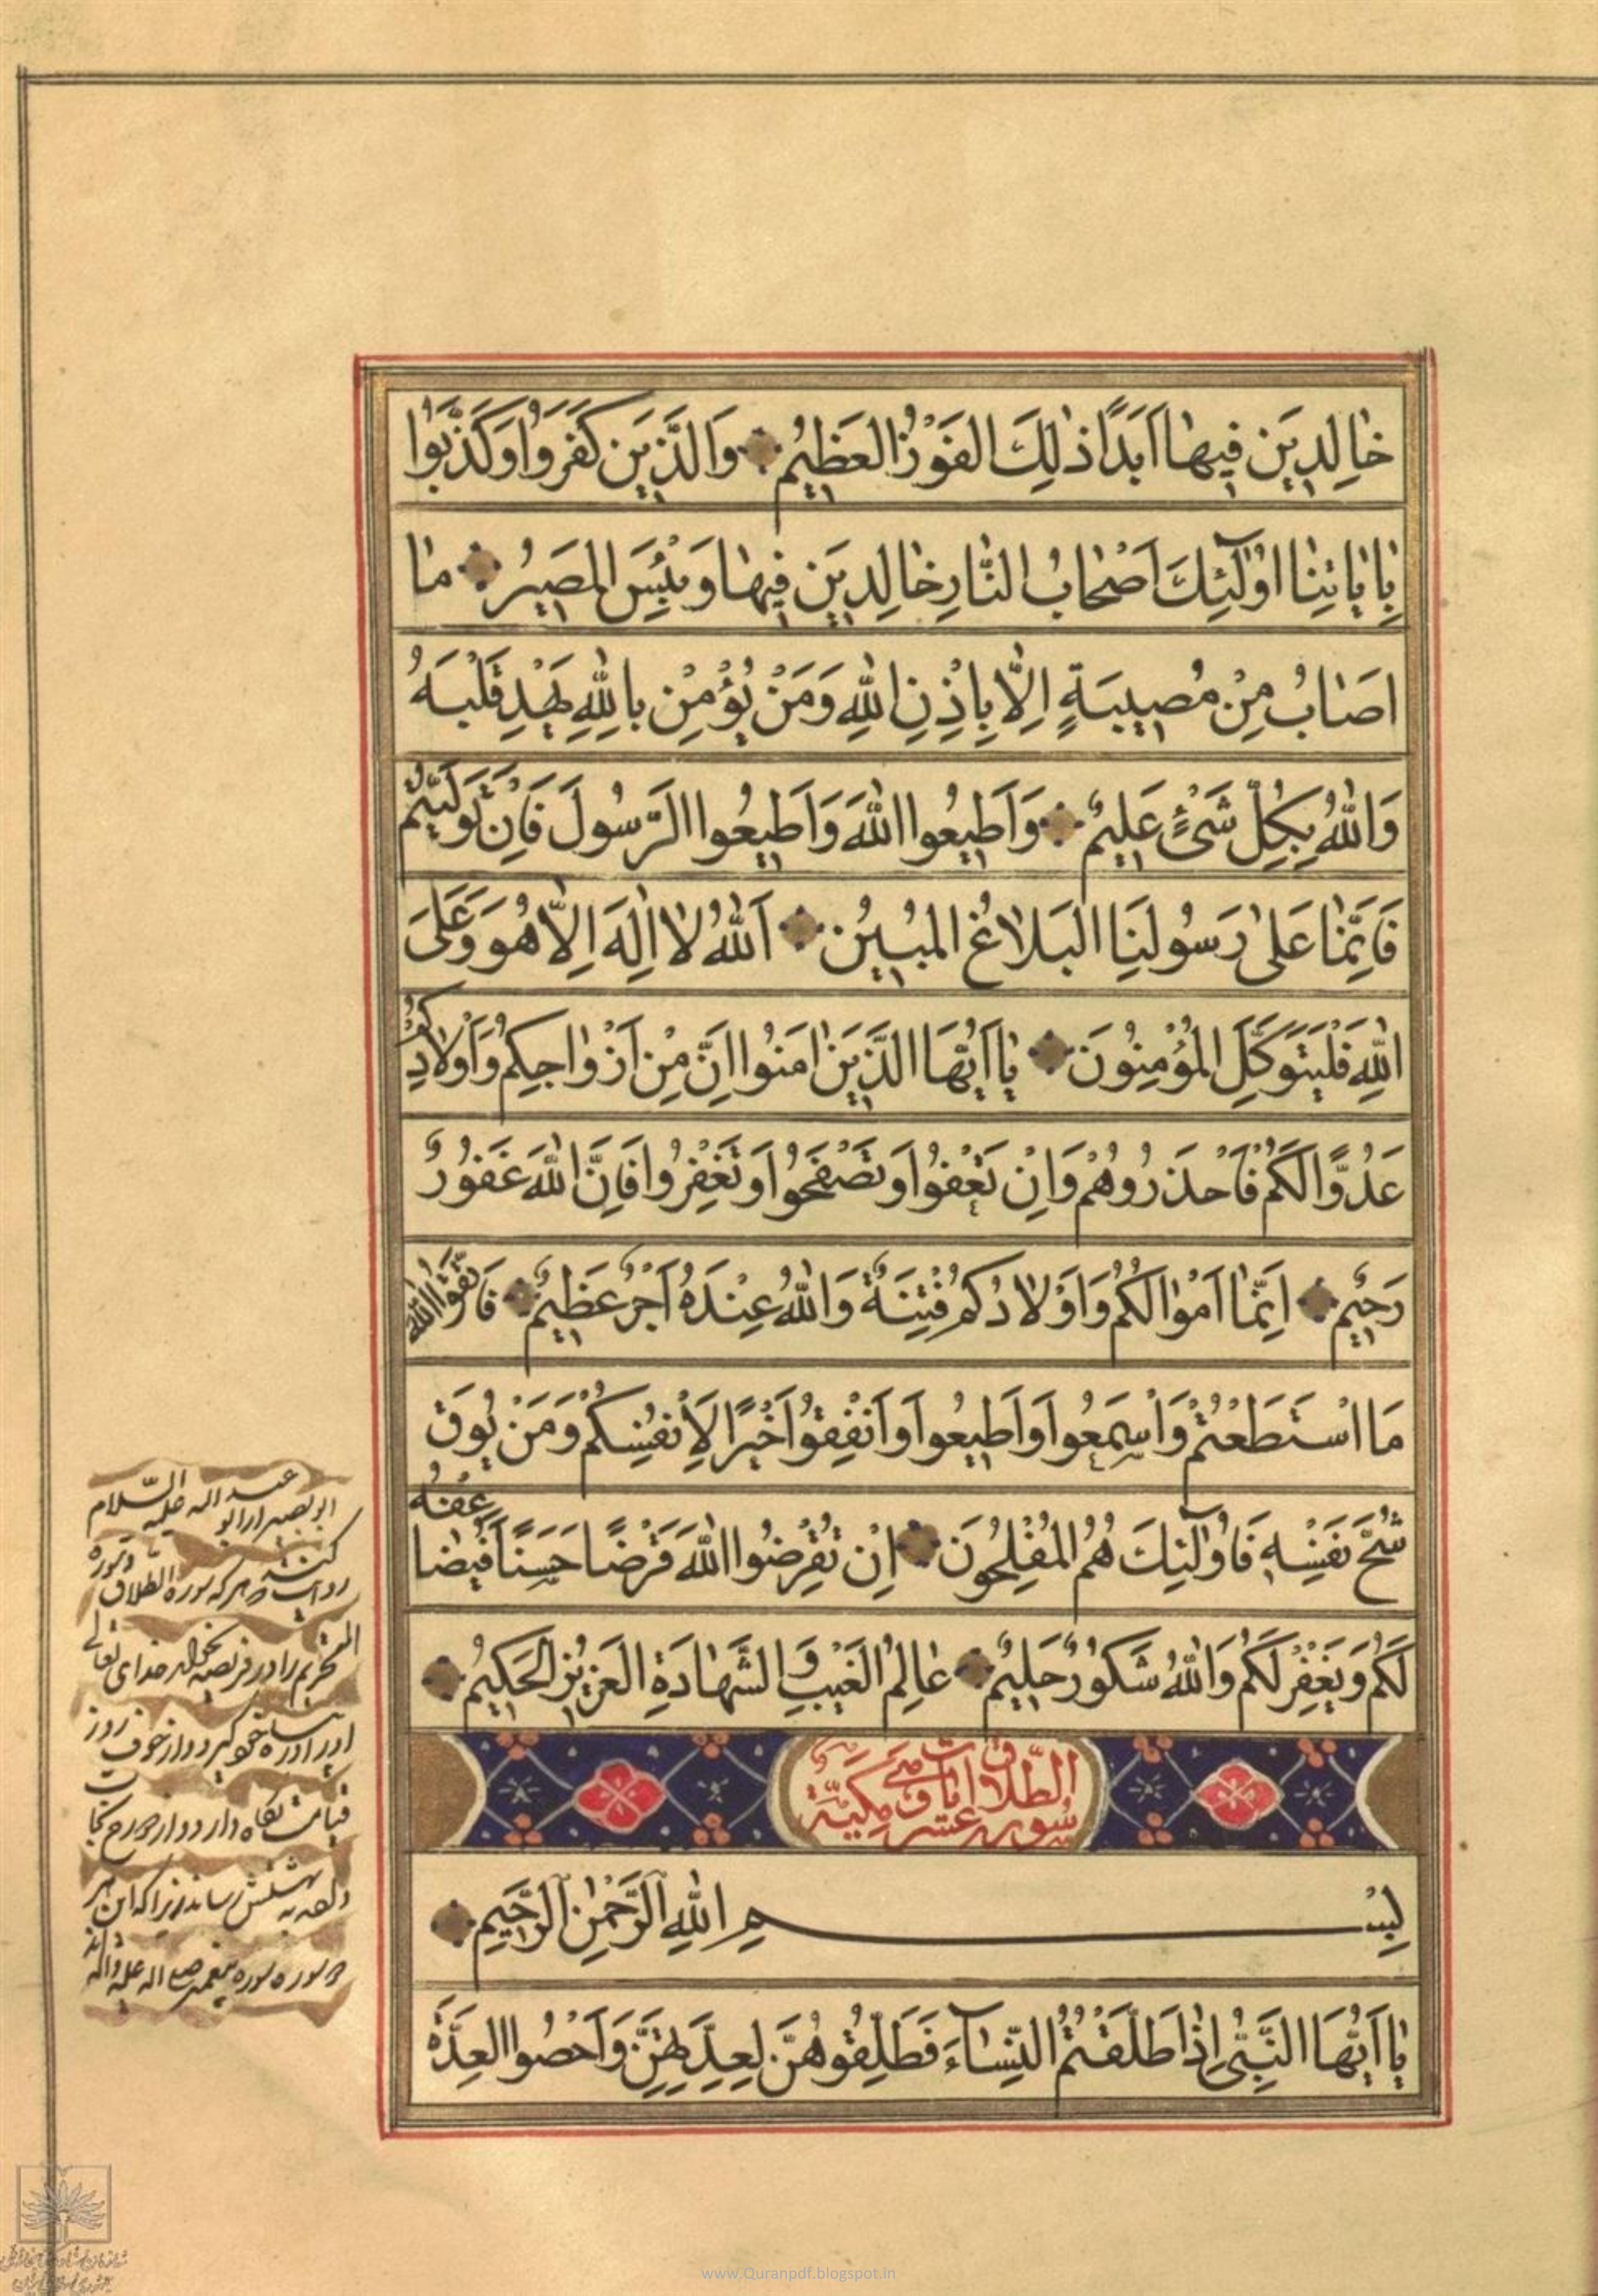 خٰالِدِينَ فِيهٰا اَبَدًا ذٰلِكَ الفَوْزُ العَظِيمُ وَالَّذِينَ كَفَرُوا وَكَذَّبُوا
بِاٰيٰاتِنٰا اُولٰٓئِكَ اَصْحٰابُ النّٰارِ خٰالِدِينَ فِيهٰا وَبِئْسَ المَصِيرُ مٰا
اَصٰابَ مِنْ مُصِيبَةٍ اِلّٰا بِاِذْنِ اللّٰهِ وَمَنْ يُؤْمِنْ بِاللّٰهِ يَهْدِ قَلْبَهُ
وَاللّٰهُ بِكُلِّ شَيْءٍ عَلِيمٌ وَاَطِيعُوا اللّٰهَ وَاَطِيعُوا الرَّسُولَ فَاِنْ تَوَلَّيْتُمْ
فَاِنَّمٰا عَلىٰ رَسُولِنَا البَلاٰغُ المُبِينُ اَللّٰهُ لاٰ اِلٰهَ اِلّٰا هُوَ وَعَلَى
اللّٰهِ فَلْيَتَوَكَّلِ المُؤْمِنُونَ يٰا اَيُّهَا الَّذِينَ اٰمَنُوا اِنَّ مِنْ اَزْوٰاجِكُمْ وَاَوْلاٰدِكُمْ
عَدُوًّا لَكُمْ فَاحْذَرُوهُمْ وَاِنْ تَعْفُوا وَتَصْفَحُوا وَتَغْفِرُوا فَاِنَّ اللّٰهَ غَفُورٌ
رَحِيمٌ اِنَّمٰا اَمْوٰالُكُمْ وَاَوْلاٰدُكُمْ فِتْنَةٌ وَاللّٰهُ عِنْدَهُ اَجْرٌ عَظِيمٌ فَاتَّقُوا اللّٰهَ
مَا اسْتَطَعْتُمْ وَاسْمَعُوا وَاَطِيعُوا وَاَنْفِقُوا خَيْرًا لِاَنْفُسِكُمْ وَمَنْ يُوقَ
شُحَّ نَفْسِهِ فَاُولٰٓئِكَ هُمُ المُفْلِحُونَ اِنْ تُقْرِضُوا اللّٰهَ قَرْضًا حَسَنًا يُضٰاعِفْهُ
لَكُمْ وَيَغْفِرْ لَكُمْ وَاللّٰهُ شَكُورٌ حَلِيمٌ عٰالِمُ الغَيْبِ وَالشَّهٰادَةِ العَزِيزُ الحَكِيمُ
سورة الطّلاق عشر اٰيات مكيّة
بِسْمِ اللّٰهِ الرَّحْمٰنِ الرَّحِيمِ
يٰا اَيُّهَا النَّبِىُّ اِذٰا طَلَّقْتُمُ النِّسٰآءَ فَطَلِّقُوهُنَّ لِعِدَّتِهِنَّ وَاَحْصُوا العِدَّةَ
ابو بصير از ابو عبد اله عليه السّلام
روايت كند هر كه سوره الطلاق و سوره
التحريم را در فريضه خداى تعالى
او را از خوف روز
قيامت نگاه دارد و از دوزخ نجات
دهد به بهشتش رساند زيرا كه اين هر
دو سوره سوره پيغمبر صلى اله عليه واله اند
www.Quranpdf.blogspot.in